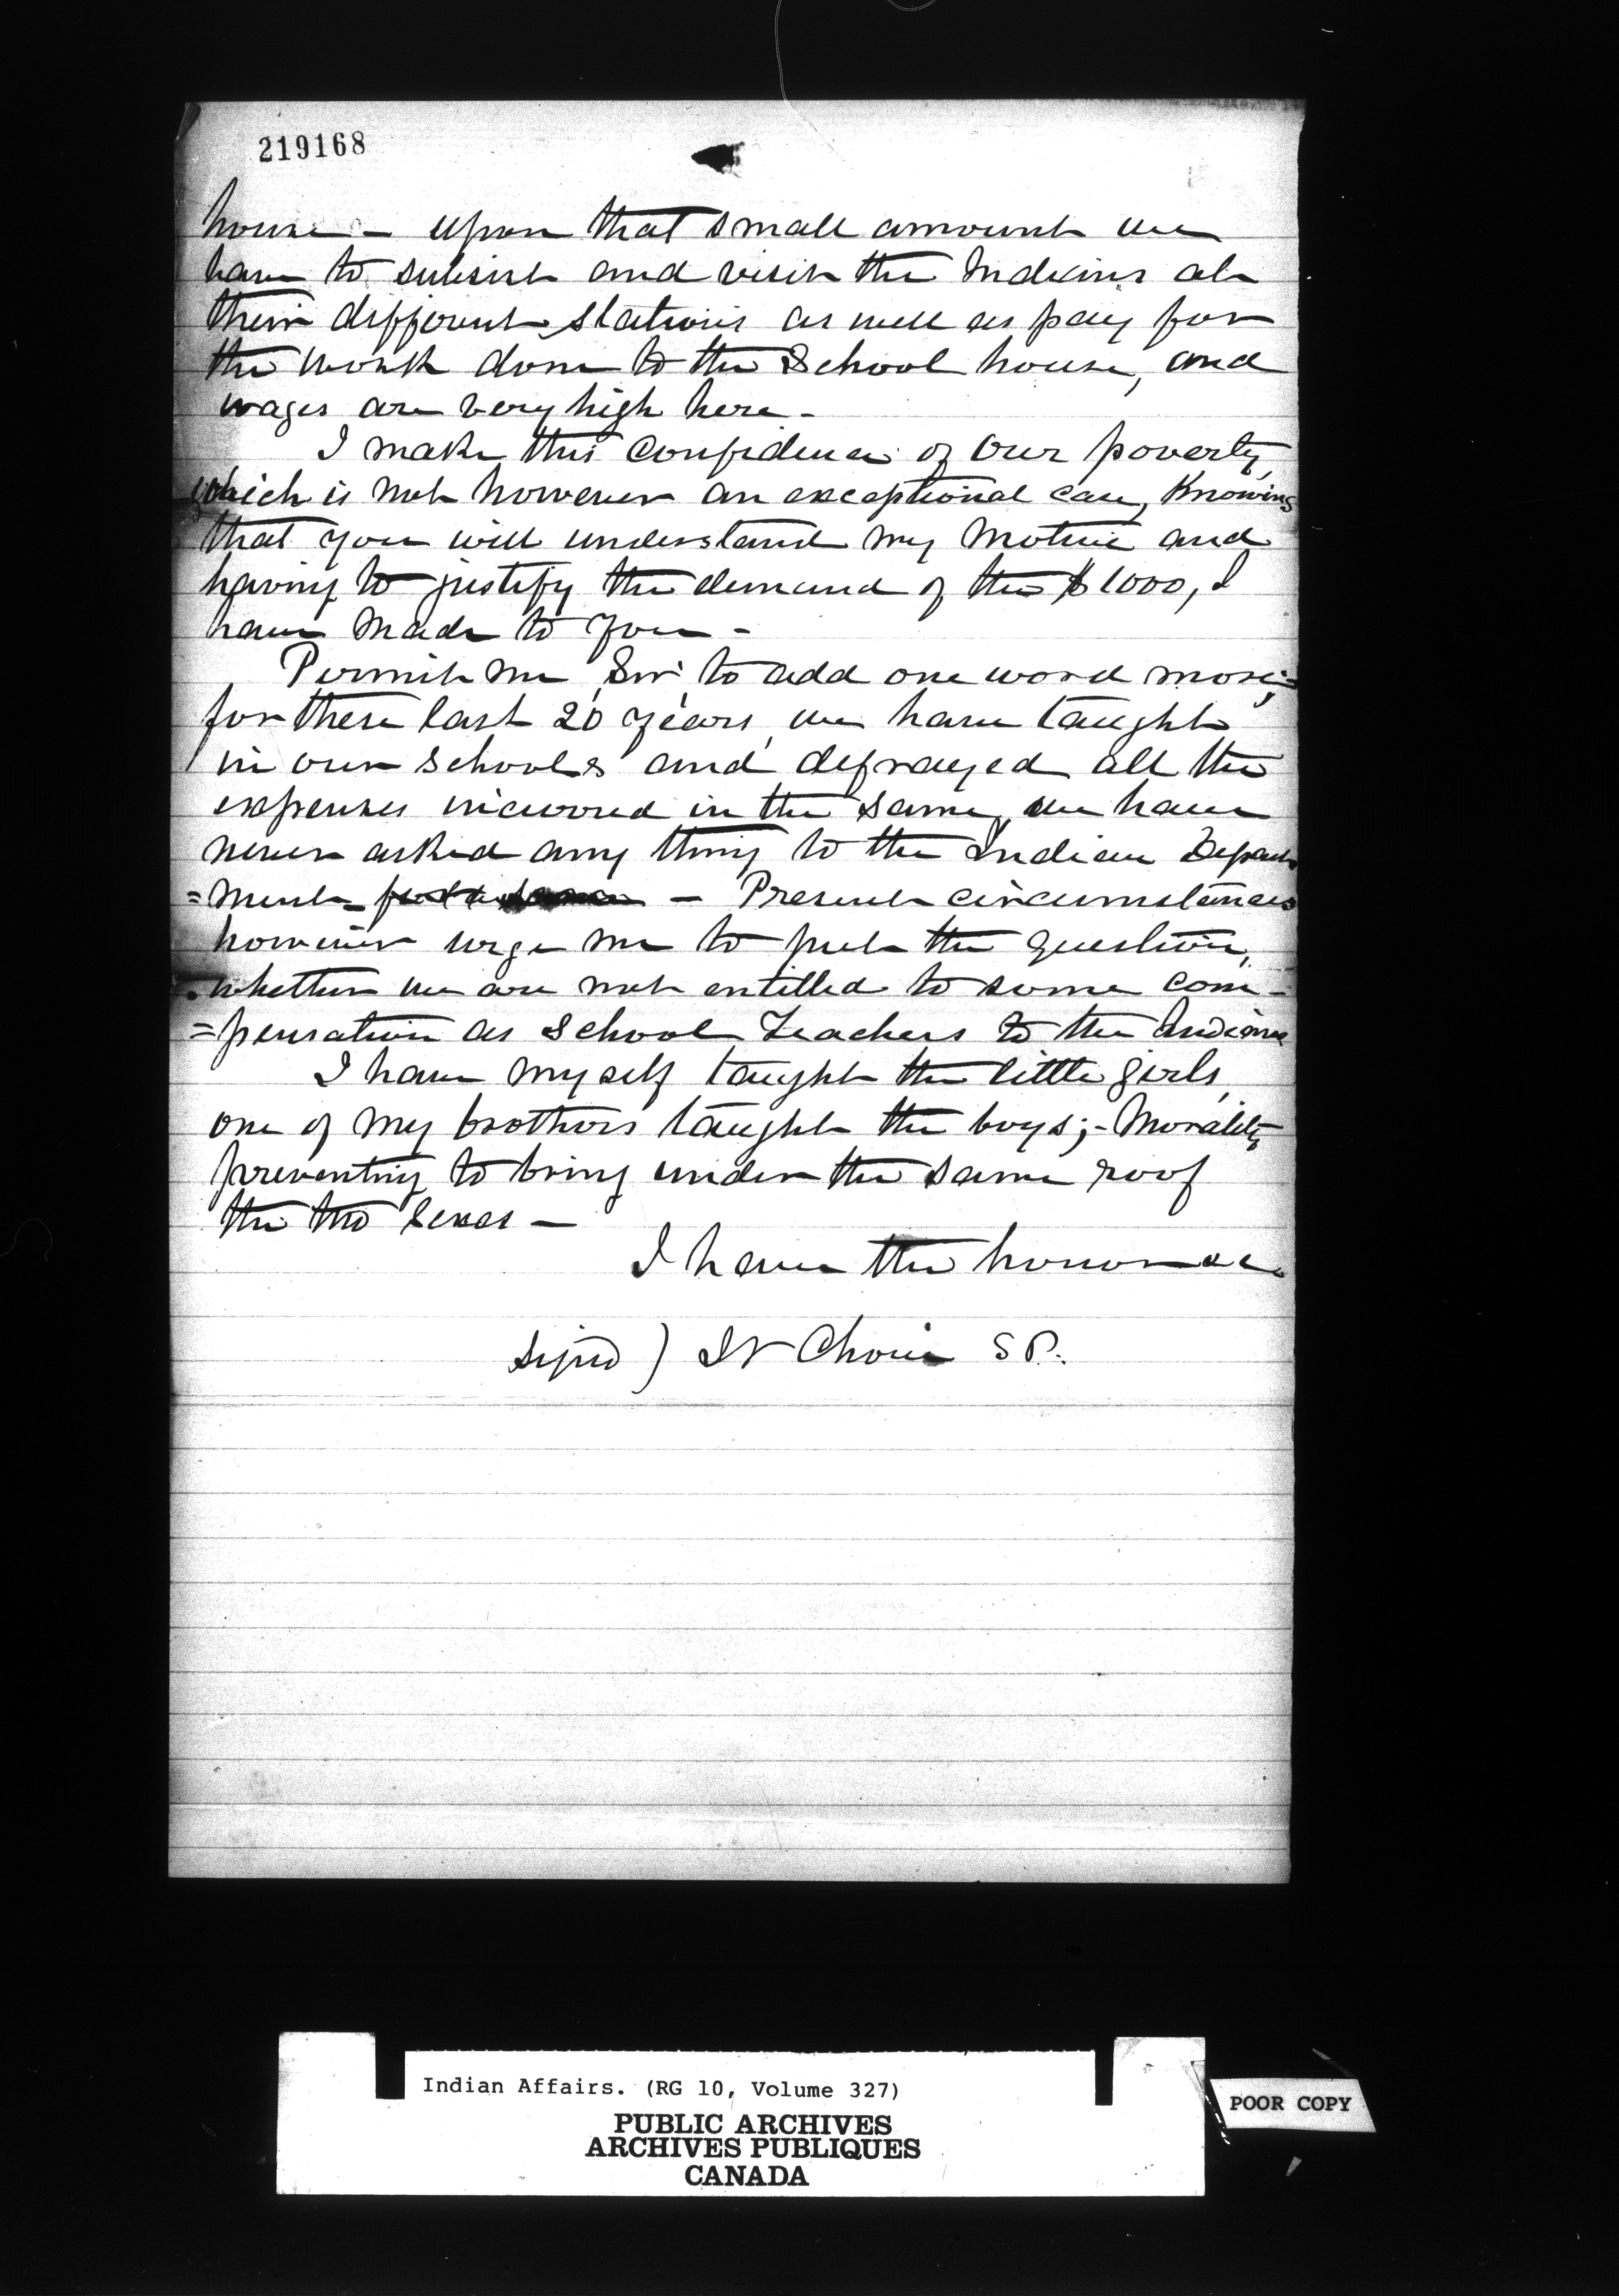 219168
house - upon that small amount we
have to subsist and visit the Indians at
their different stations as well as pay for
the work done to the School house, and
wages are very high here -
I make this confidence of our poverty,
which is not however an exceptional case, Knowing
that you will understand my motive and
having to justify the demand of the $1000, I
have made to you -
Permit me, Sir, to add one word more;
for these last 20 years, we have taught
in our schools and defrayed all the
expenses incurred in the same, we have
never asked any thing to the Indian Depart
=ment - - Present circumstances
however urge me to put the question,
whether we are not entitled to some com-
=pensation as School Teachers to the Indians
I have myself taught the little girls,
one of my brothers taught the boys; - Morality
preventing to bring under the same roof
the two sexes -
I have the honor
signed)
Indian Affairs. (RG 10, Volume 327)
PUBLIC ARCHIVES
ARCHIVES PUBLIQUES
CANADA
POOR COPY